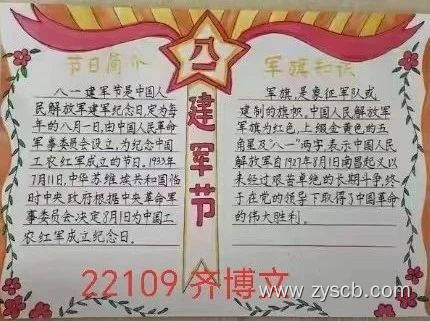 节日简介
八一建军节是中国人
民解放军建军纪念日,定为每
年的八月一日,由中国人民革命
军事委员会设立,为纪念中国
工农红军成立的节日。1933年
7月11日,中华苏维埃共和国临
时中央政府根据中央革命军
事委员会决定8月1日为中国工
农红军成立纪念日。
八一
建军节
军旗知识
军旗,是象征军队或
建制的旗帜,中国人民解放军
军旗为红色,上缀金黄色的五
角星及"八一"两字,表示中国人民
解放军自1927年8月1日南昌起义以
来经过艰苦卓绝的长期斗争,终
于在党的领导下取得了中国革命
的伟大胜利。
22109 齐博文
www.zyscb.com